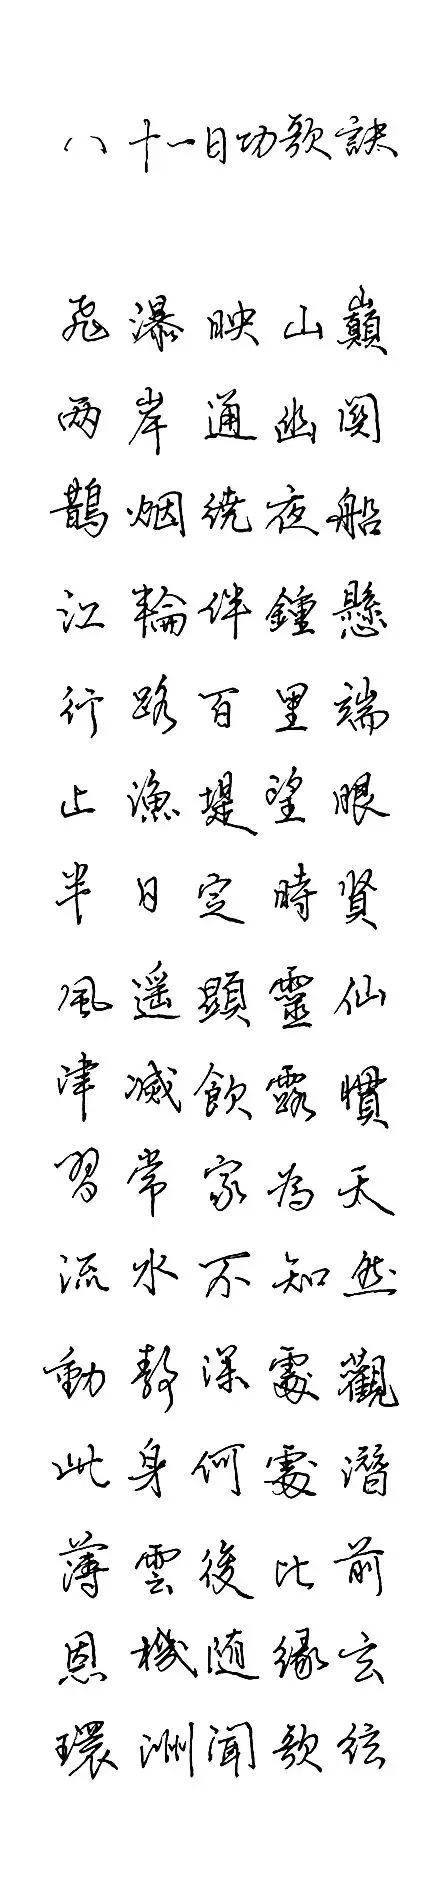 八十一日功歌訣
飛瀑映山巔
两岸通幽関
鵲烟繞夜船
江輪伴鐘懸
行路百里端
止漁堤望眼
半日定時賢
風遥顯靈仙
津滅飲露慣
習常家為天
流水不知然
動静深處觀
此身何處潛
薄雲後比前
恩機随緣玄
環洲聞歌弦